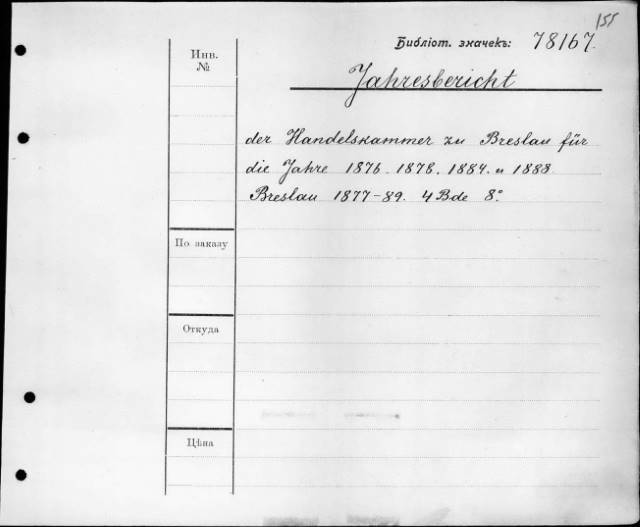 155
Библіот. значекъ: 78167.
Инв.
№
Jahresbericht
der Handelskammer zu Breslau für
die Jahre 1876. 1878. 1884. u 1888
Breslau 1877-89. 4 Bde 8°
По заказу
Откуда
Цѣна